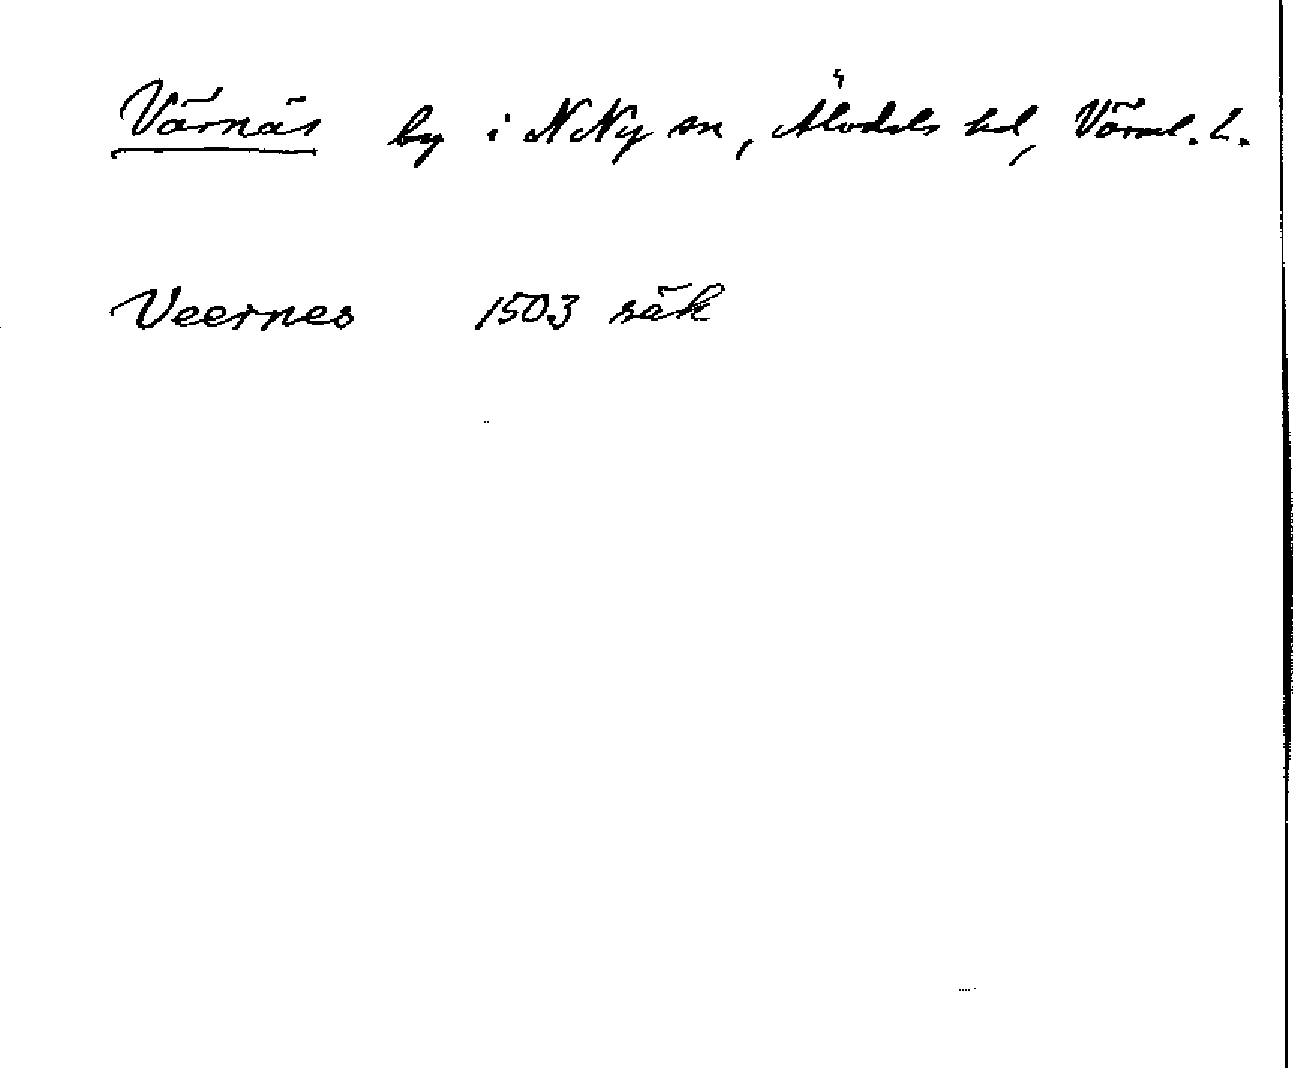 Värnäs by i N Ny sn, Älvdals hd, Värml. l.
Veernes 1503 räk